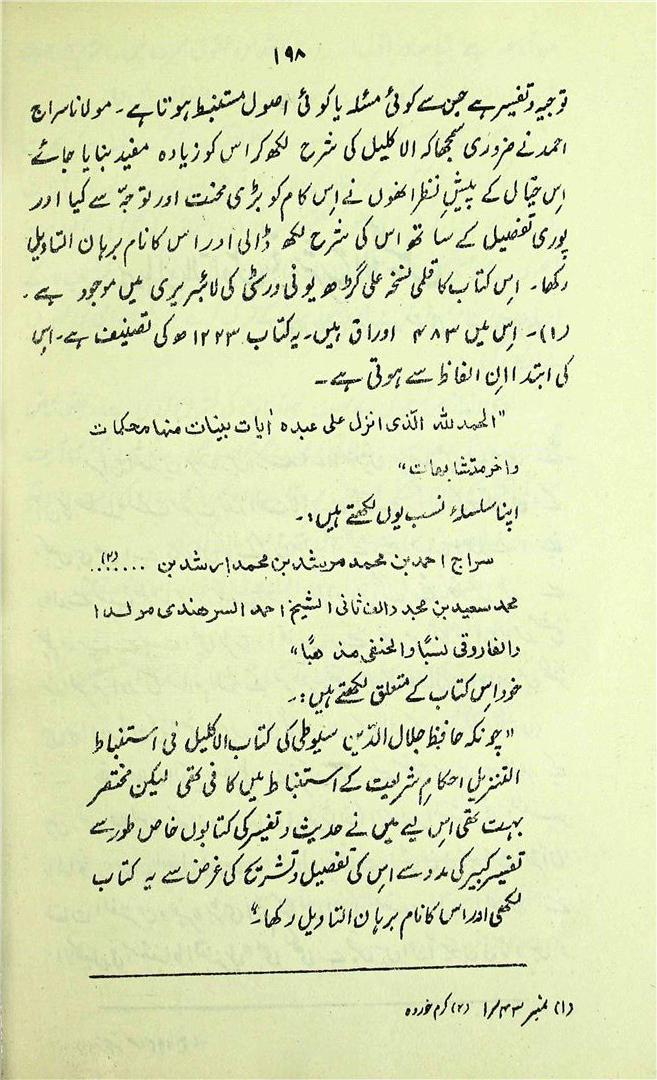 ۱۹۸
توجیہ و تفسیر ہے جن سے کوئی مسئلہ یا کوئی اصول مستنبط ہوتا ہے۔ مولانا سراج
احمد نے ضروری سمجھا کہ الاکلیل کی شرح لکھ کر اس کو زیادہ مفید بنایا جائے
اِس خیال کے پیشِ نظر انھوں نے اِس کام کو بڑی محنت اور توجہّ سے کیا اور
پوری تفصیل کے ساتھ اس کی شرح لکھ ڈالی اور اس کا نام برہان التاویل
رکھا۔ اِس کتاب کا قلمی نسخہ علی گڑھ یونی ورسٹی کی لائبریری میں موجود ہے۔
(۱)۔ اِس میں ۴۸۳ اوراق ہیں۔ یہ کتاب ۱۲۲۳ھ کی تصنیف ہے۔ اِس
کی ابتدا اِن الفاظ سے ہوتی ہے۔
"الحمد للہ الّذی انزل علی عبدہ اٰیات بینات منہا محکمات
واخر متشابہات"
اپنا سلسلۂ نسب یوں لکھتے ہیں:۔
سراج احمد بن محمد مرشد بن محمد ارشد بن .......(۲)
محمد سعید بن مجدد الف ثانی الشیخ احمد السرھندی مولدا
والفاروقی نسبًا والحنفی مذھبًا"
خود اِس کتاب کے متعلق لکھتے ہیں:۔
"چونکہ حافظ جلال الدّین سیوطی کی کتاب الاکلیل فی استنباط
التنزیل احکامِ شریعت کے استنباط میں کافی تھی لیکن مختصر
بہت تھی اس لیے میں نے حدیث و تفسیر کی کتابوں خاص طور سے
تفسیر کبیر کی مدد سے اِس کی تفصیل و تشریح کی غرض سے یہ کتاب
لکھی اور اس کا نام برہان التاویل رکھا۔"
(۱) نمبر ۱/۴۳ (۲) کرم خوردہ